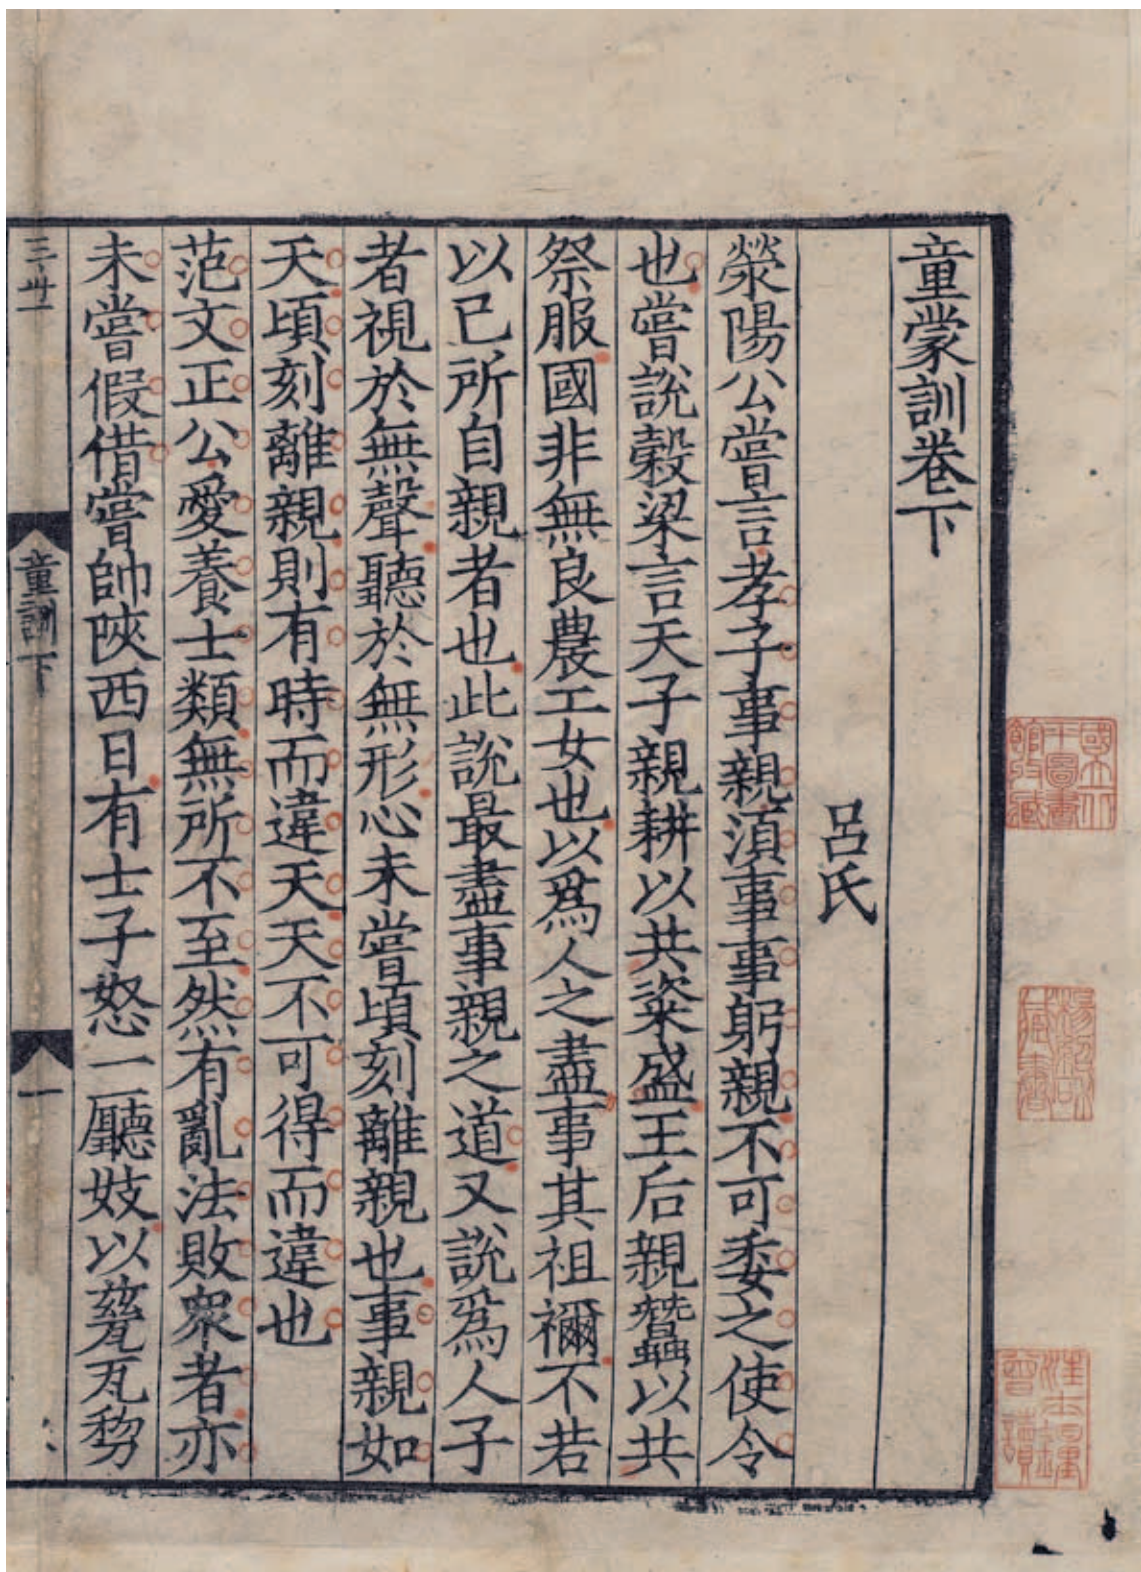 童蒙訓卷下
呂氏
滎陽公嘗言孝子事親須事事躬親不可委之使令
也嘗說穀梁言天子親耕以共粢盛王后親蠶以共
祭服國非無良農工女也以為人之盡事其祖禰不若
以已所自親者也此說最盡事親之道又說為人子
者視於無聲聽於無形心未嘗頃刻離親也事親如
天頃刻離親則有時而違天天不可得而違也
范文正公愛養士類無所不至然有亂法敗衆者亦
未嘗假借嘗帥陝西日有士子怒一廳妓以甆瓦剺
童訓下
一
國立中
央圖書
館收藏